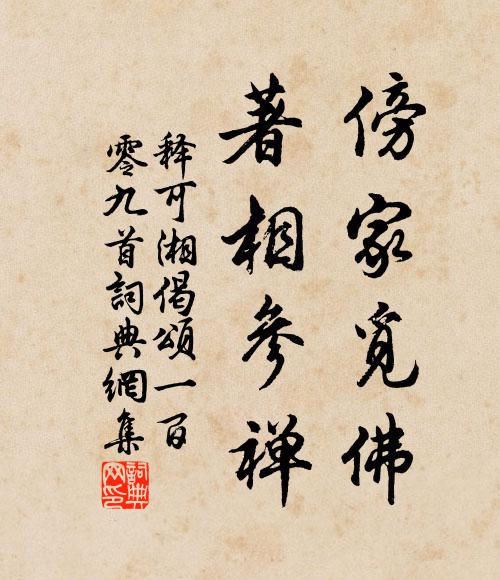 傍家覓佛
著相參禅
释可湘偈頌一百
零九首詞典網集
詞典网印